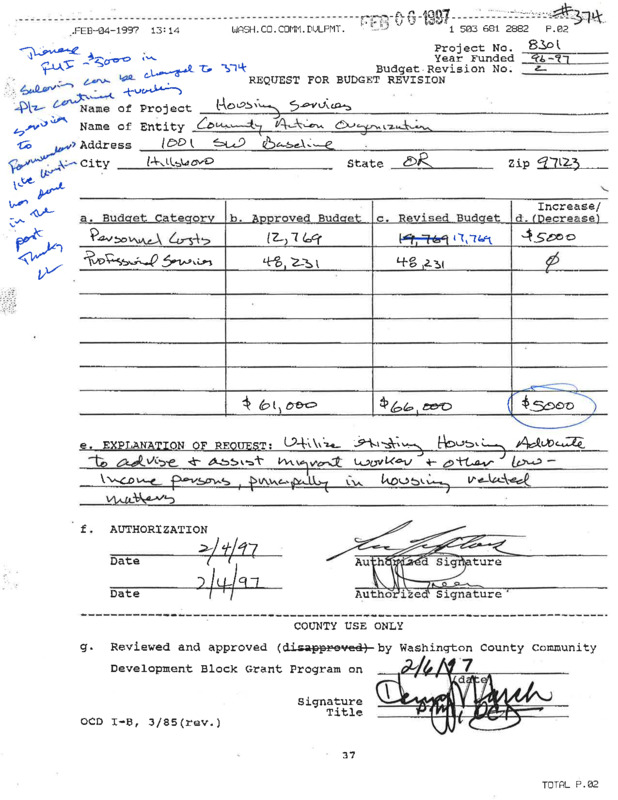 #374
FEB 06 1997
FEB-04-1997 13:14 WASH.CO.COMM.DVLPMT. 1 503 681 2882 P.02
Project No. 8301
Year Funded 96-97
Budget Revision No. 2
REQUEST FOR BUDGET REVISION
FYI - $5000 in
can be changed to 374
continue
services
to
has done
in the
past
Name of Project Housing Services
Name of Entity Community Action Organization
Address 1001 SW Baseline
City Hillsboro State OR Zip 97123
a. Budget Category b. Approved Budget c. Revised Budget Increase/ d. (Decrease)
Personnel Costs 12,769 19,769 17,769 $5000
Professional Services 48,231 48,231 ∅
$61,000 $66,000 $5000
e. EXPLANATION OF REQUEST: Utilize Existing Housing Advocate
to advise + assist migrant worker + other low-
income persons, principally in housing related
matters
f. AUTHORIZATION
2/4/97
Date Authorized Signature
2/4/97
Date Authorized Signature
COUNTY USE ONLY
g. Reviewed and approved (disapproved) by Washington County Community
Development Block Grant Program on 2/6/97
(date)
Signature
Title
OCD I-B, 3/85(rev.)
37
TOTAL P.02